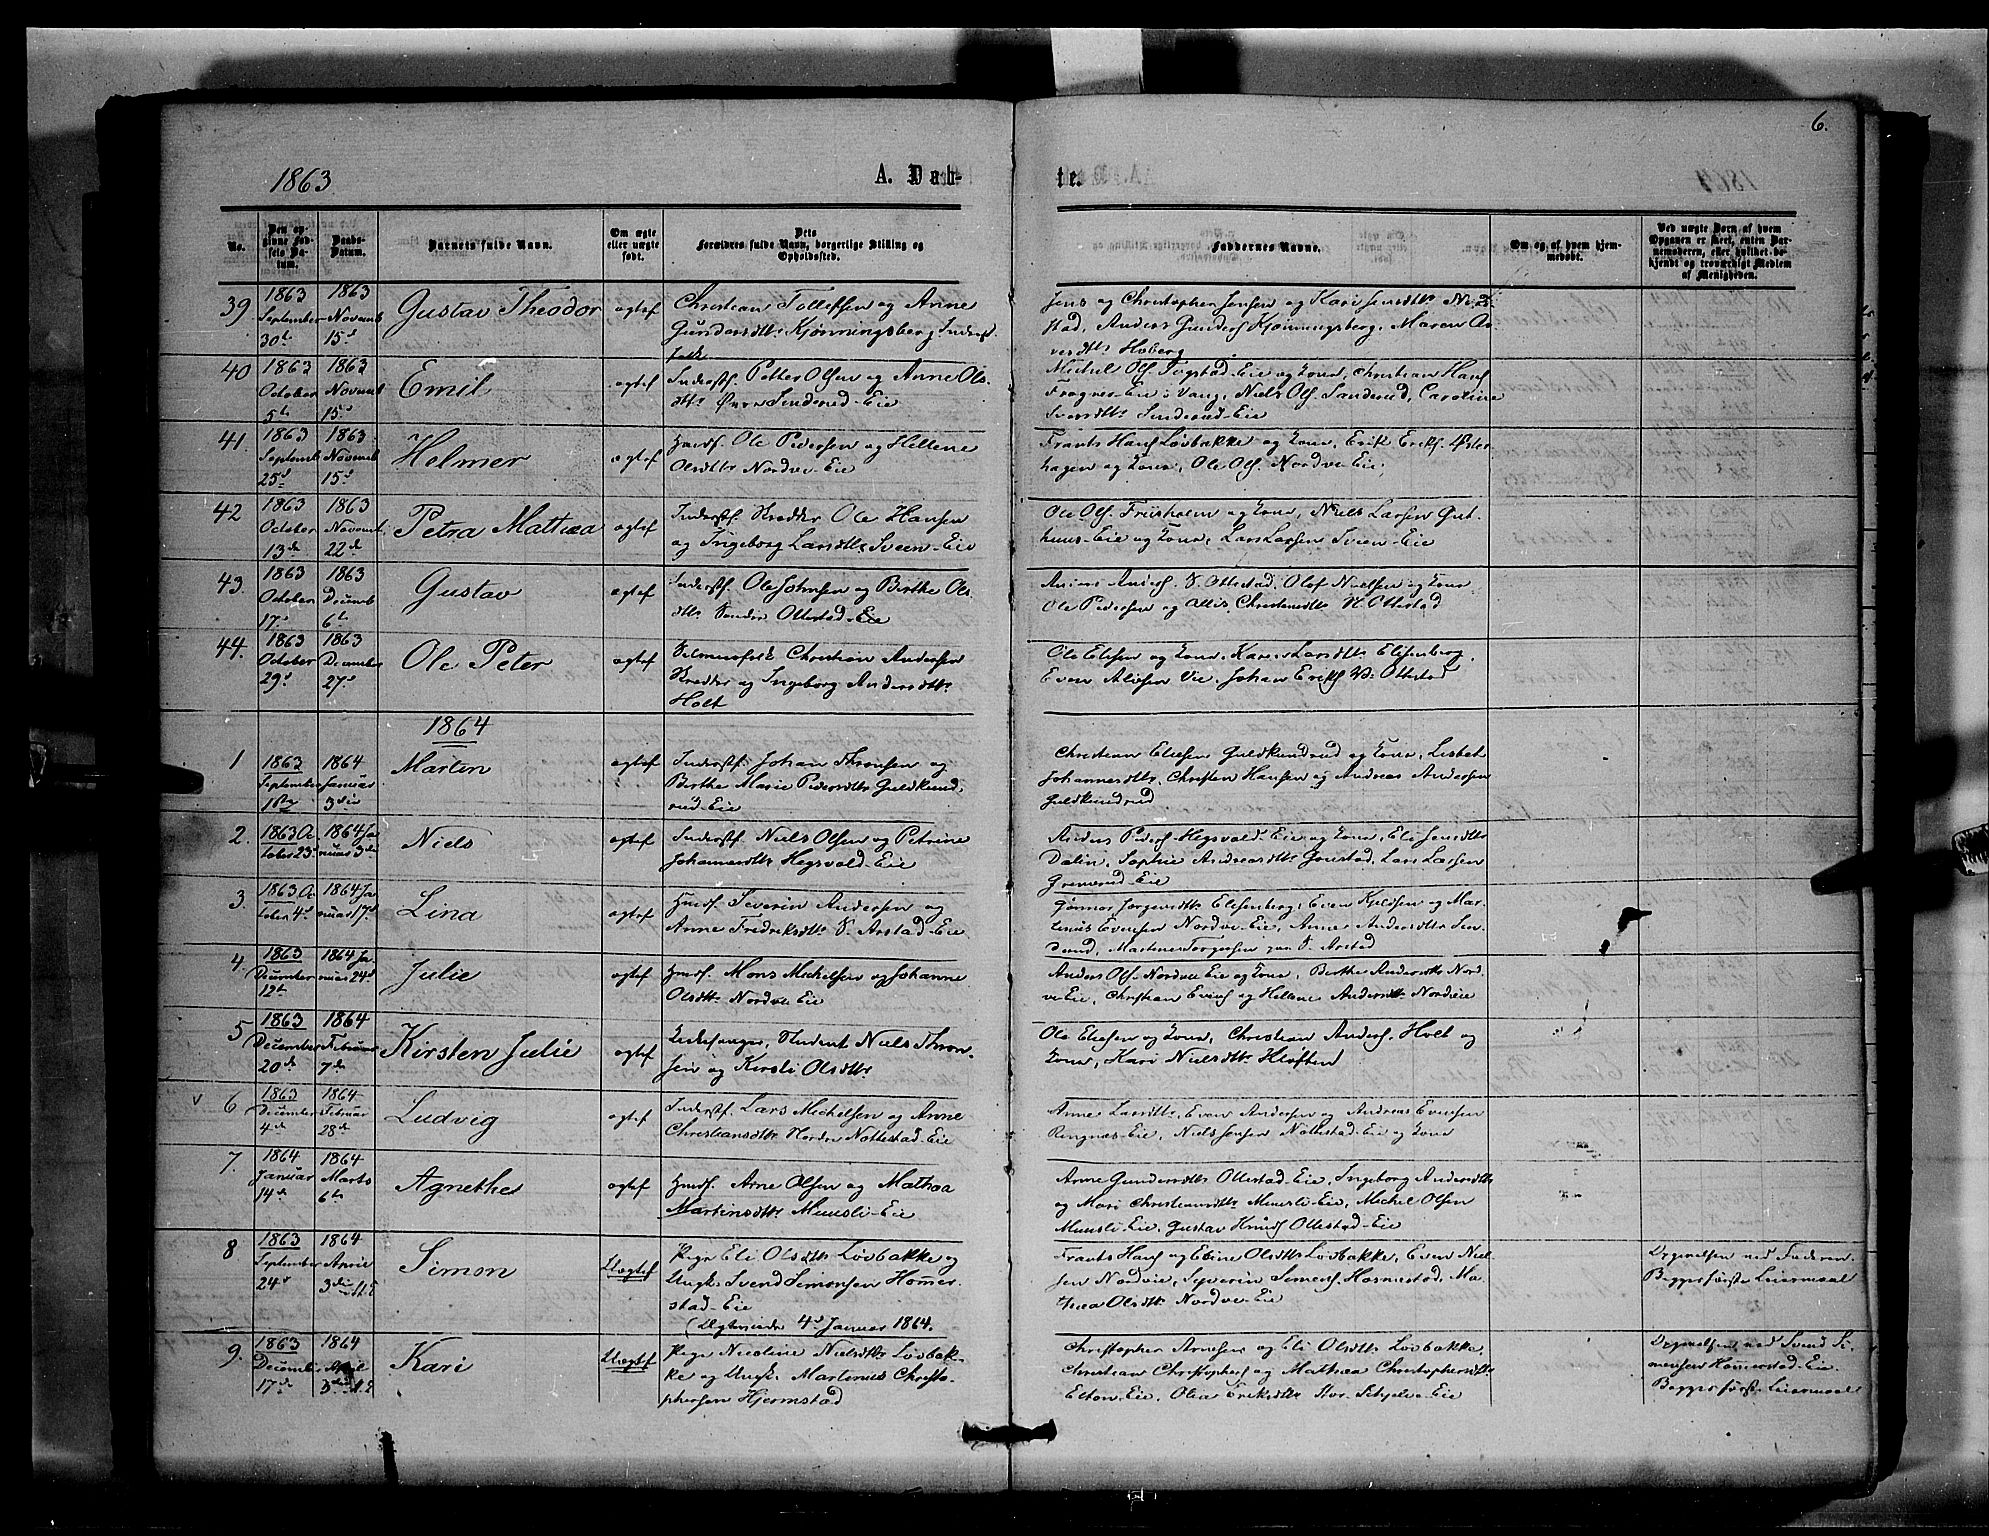 6.
1863
A. Dab-
te.
No.
Den op-
givne Fød-
sels Da-
tum.
Daabs-
Datum.
Barnets fulde Navn.
Om ægte
eller uægte
født.
Dets
Forældres fulde Navn, borgerlige Stilling og
Opholdssted.
Faddernes Navne.
Om og af hvem hjem-
medøbt.
Ved uægte Børn af hvem
Opgaven er skeet, enten Bar-
nemoderen, eller hvilket be-
kjendt og troværdigt Medlem
af Menigheden.
39.
1863
September
30te
1863
Novemb
15d
Gustav Theodor
ægtef
Christian Tollefsen og Anne
Gundersdtr. Kjønningsberg, Inderst
folk
Jens og Christopher Jensen og Kari Jensdtr.
stad, Anders Gunders Kjønningsberg, Maren
Hoberg
40
1863
October
5te
1863
Novemb
15d
Emil
ægtef
Inderstf. Petter Olsen og Anne Ols
dtr. Øvre Sinderud-Eie
Michel Ols. Togstad-Eie og Kona, Christian Hans
Frogner-Eie i Vang, Niels Ols. Sanderud, Caroline
Sinderud-Eie
41.
1863
Septemb
25d
1863
Novemb
15d
Helmer
ægtef
Huusf. Ole Pedersen og Hellene
Olsdtr. Nordvi-Eie
Frants Hans Løvbakke og Kona, Erik Eriks. Øster
hagen og Kona, Ole Ols. Nordvi-Eie,
42
1863
October
13de
1863
Novemb.
22de
Petra Mathæa
ægtef
Inderstf. Skrædder Ole Hansen
og Ingeborg Larsdtr. Sveen-Eie
Ole Ols. Friisholm og Kona, Niels Larsen Gut-
huus-Eie og Kona, Lars Larsen Sveen-Eie
43.
1863
October
17de
1863
Decemb
6te
Gustav
ægtef
Inderstf. Ole Johnsen og Birthe Ols
dtr. Søndre Ottestad-Eie
Anders. S. Ottestad, Olof Noelsen og Kona
Ole Pedersen og Christensdtr. N. Ottestad
44.
1863
October
29d
1863
December
27d
Ole Peter
ægtef
Selveierfolk Christian Andersen
Skrædder og Ingeborg Andersdtr.
Holt
Ole Eliesen og Kona, Karen Larsdtr. Elisenberg,
Even Vie, Johan Eriks. Ottestad
1864
1
1863
September
1ste
1864
Januar
3die
Martin
ægtef
Inderstf. Johan Thronsen og
Birthe Marie Pedersdtr. Guldkund-
rud-Eie
Christian Eliesen Guldkundrud og Kona, Lisbet
Johannesdtr., Christen Hansen og Andreas Andersen
Guldkundrud
2.
1863 Oc
tober 23d
1864 Ja
nuar 3die
Niels
ægtef
Inderstf. Niels Olsen og Petrine
Johannesdtr. Hegsvold-Eie
Anders Peders. Hegsvold Eie og Kona, Eli Jensdtr.
Dalin, Sophie Andreasdtr. Lars Larsen
Eie
3.
1863 Oc
tober 4d
1864 Ja
nuar 17d
Lina
ægtef
Huusf. Severin Andersen og
Anne Fredriksdtr. S. Arstad-Eie
Gunnor Jørgensdtr. Elisenberg, Even Kjeldsen og Mar-
tinus Evensen Nordvi-Eie, Anne Andersdtr. Sen-
derud, Martinus Torgersen paa S. Arstad
4.
1863
December
12te
1864 Ja
nuar 24d
Julie
ægtef
Huusf. Mons Michelsen og Johanne
Olsdtr. Nordvi Eie
Anders Ols. Nordvi Eie og Kona, Birthe Andersdtr. Nord-
vi-Eie, Christian Evens. og Hellene Andersdtr. Nordvie
5
1863
December
20de
1864
Februar
7de
Kirsten Julie
ægtef
Kirkesanger, Student Niels Thron-
sen og Kirsti Olsdtr.
Ole Eliesen og Kona, Christian Anders. Holt og
Kona, Kari Nielsdtr.
v 6
1863
December
4de
1864
Februar
28de
Ludvig
ægtef
Inderstf. Lars Michelsen og Anne
Christiansdtr. Nordre Nottestad-Eie
Anne Larsdtr., Even Andersen og Andreas Evensen
Ringnæs-Eie, Niels Jensen Nottestad-Eie og Kona
7.
1864
Januar
14de
1864
Marts
6te
Agnethe
ægtef
Huusf. Arne Olsen og Mathæa
Martinsdtr. Muusli-Eie
Anne Gundersdtr. Ottestad-Eie, Ingeborg Andersdtr.
og Mari Christiansdtr. Muusli-Eie, Michel Olsen
Muusli-Eie, Gustav Knuds. Ottestad-Eie
8
1863
September
24d
1864
April
3die
Simon
Uægtef
Pige Eli Olsdtr. Løvbakke og
Ungk. Svend Simonsen Hommer-
stad-Eie
(Ægteviede 4d Januar 1864.
Frants Hans og Eline Olsdtr. Løvbakke, Even Niel-
sen Nordvie, Severin Simens. Hommerstad, Ma-
thæa Olsdtr. Nordvi-Eie
Opgivelsen ved Faderen.
Begges første Leiermaal
9.
1863
Decemb.
17de
1864
April
3die
Kari
Uægtef
Pige Nicoline Nielsdtr. Løvbak-
ke og Ungk. Martinus Christo-
phersen Hjermstad
Christopher Arnesen og Eli Olsdtr. Løvbakke,
Christian Christophers. og Mathæa Christophersdtr.
Eie, Olia Eriksdtr. Stor-Skjelve-Eie
Opgivelsen ved Svend Si-
mensen Hommerstad-Eie.
Begges første Leiermaal